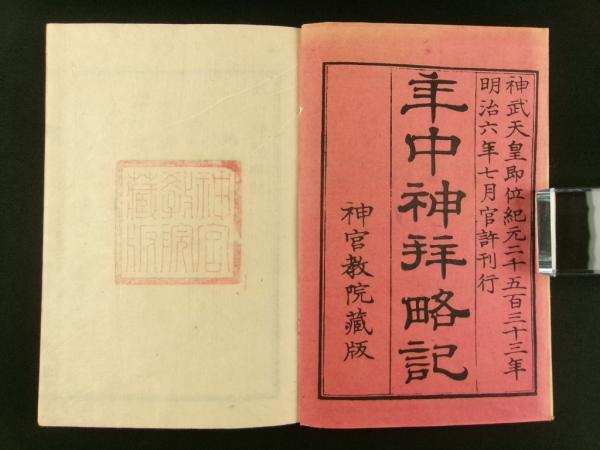 神武天皇即位紀元二千五百三十三年
明治六年七月官許刊行
年中神拜略記
神宮教院藏版
神宮
教院
藏版